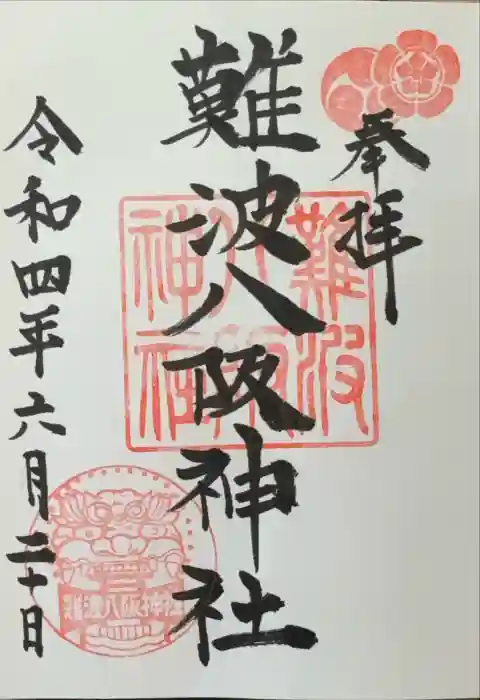 奉拝
難波八阪神社
令和四年六月二十日
難波八阪神社
難波八阪神社